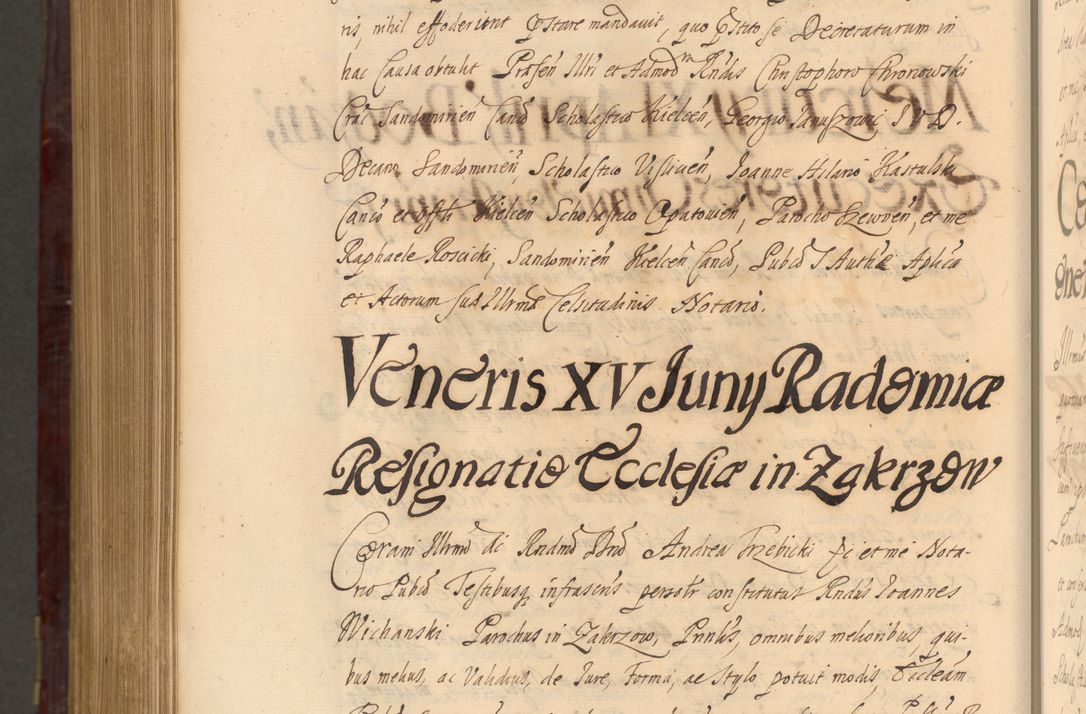 ris, nihil effoderient pstare mandavit, quo pstito se Decreraturum in
hac Causa obtulit Prasen Illri et Admod m Rndis Christophoro Chronowski
Crac Sandomirien Canco Scholastico Kielcen, Georgio Januszowic J V D.
Decano Sandomirien, Scholastico Visliven, Joanne Hilario Kastulski
Canco et Offli Kielcen Scholastico Opatovien, Parocho Szewven, et me
Raphaele Roscicki, Sandomirien Kielcen Canco, Pubco S Authe Aplica
et Actorum sua Illrma Celsitudinis Notario.
Veneris XV Juny Radomiæ
Resignatio Ecclesiæ in Zakrzow
Coram Illrmo ac Rndmo Dno Andrea Trzebicki et me Nota-
rio Pubco Testibusq infrascris personlr constitutus Rndus Joannes
Wichanski Parochus in Zakrzow, Prnlis, omnibus melioribus, qui-
bus melius, ac Validius, de Jure, Forma, ac Stylo potuit modis, Eccleam